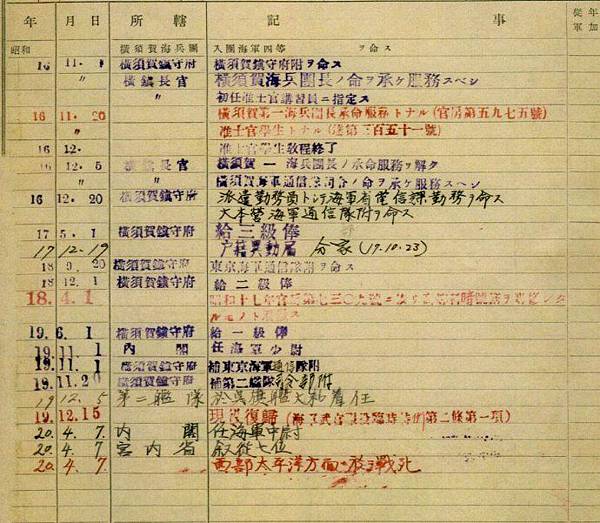 年 月 日 所轄 記事
昭和 橫須賀海兵團 入團海軍四等 ヲ命ス
16 11. 橫須賀鎮守府 橫須賀鎮守府附ヲ命ス
〃 橫鎮長官 橫須賀海兵團長ノ命ヲ承ケ服務スベシ
〃 初任准士官講習員ニ指定ス
16 11. 20 橫須賀第一海兵團長承命服務トナル(官房第五九七五號)
〃 准士官學生トナル(達第三百五十一號)
16 12. 准士官學生教程終了
16 12. 5 橫鎮長官 橫須賀一海兵團長ノ承命服務ヲ解ク
〃 橫須賀海軍通信 司令ノ命ヲ承ケ服務スベシ
16 12. 20 橫須賀鎮守府 派遣勤務員トシ海軍省電信課勤務ヲ命ス
大本營海軍通信隊附ヲ命ス
17 5. 1 橫須賀鎮守府 給三級俸
17 12. 19 戸籍異動届 分家(17.10.23)
18 9. 20 橫須賀鎮守府 東京海軍通信隊附ヲ命ス
18 12. 1 橫須賀鎮守府 給二級俸
18. 4. 1 昭和十七年官房第七三〇九號ニ依リ
ルモノト
19. 6. 1 橫須賀鎮守府 給一級俸
19. 11. 1 內閣 任海軍少尉
19. 11. 1 橫須賀鎮守府 補東京海軍通信隊附
19. 11. 20 橫須賀鎮守府 補第二艦隊司令部附
19 12. 5 第二艦隊 於呉旗艦大和着任
19. 12. 15 現役復歸(海軍武官服役臨時特例第二條第一項)
20. 4. 7 內閣 任海軍中尉
20. 4. 7 宮内省 叙從七位
20. 4. 7 西部太平洋方面ニ於テ戰死